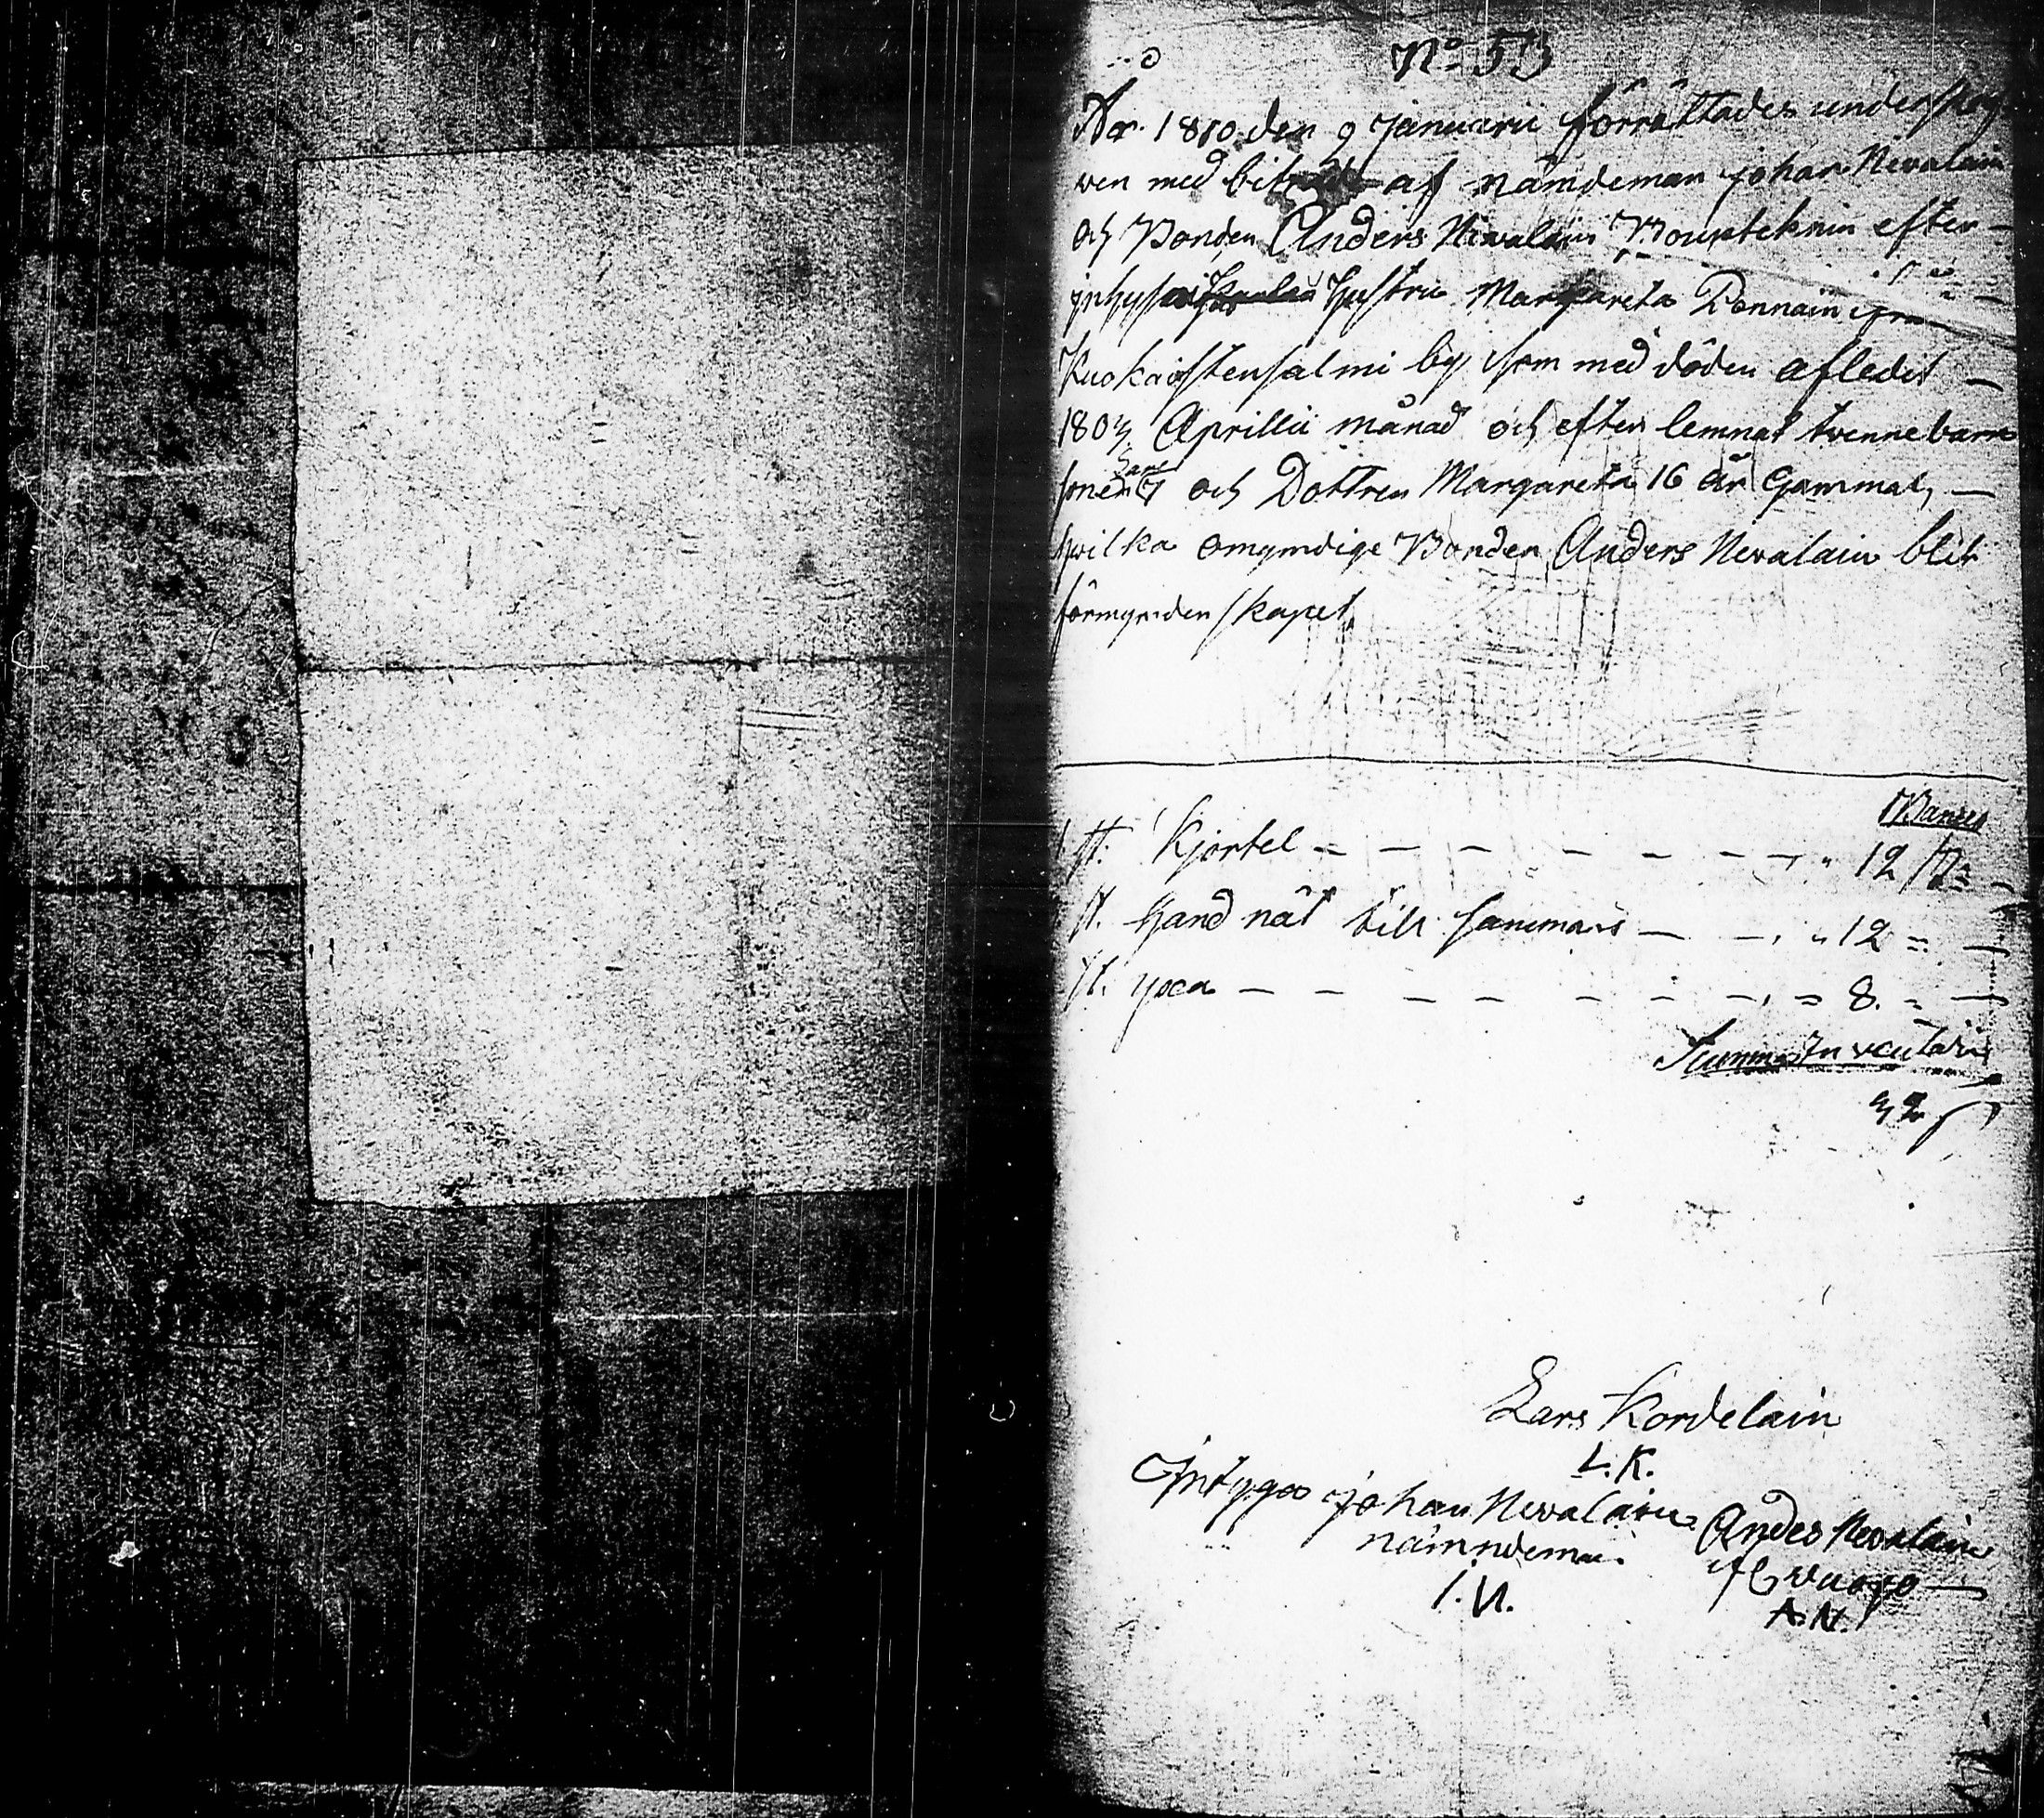 No 53
År 1810 den 9 Januarii förrättades underskref
ven med biträde af nämdeman Johan Nevalain
och Bonden Anders Nevalain Boupteknin efter
inhyses Hustru Margareta Pennain ifrån
Kuokaistensalmi by som med döden afledit
1803 Aprillii månad och efter lemnat tvenne barn
Lars
sonen 7 och Dottren Margareta 16 år Gammal,
hvilka omyndige Bonden Anders Nevalain blit
förmynderskapet
Banco
1 st. Kjortel 12 s
st. hand nät till sammans 12
st. yxa 8
Summa Inventarie
32 s
Lars Kordelain
L. K.
Intyga Johan Nevalain
nämndeman
I. N.
Anders Nevalain
A. N.